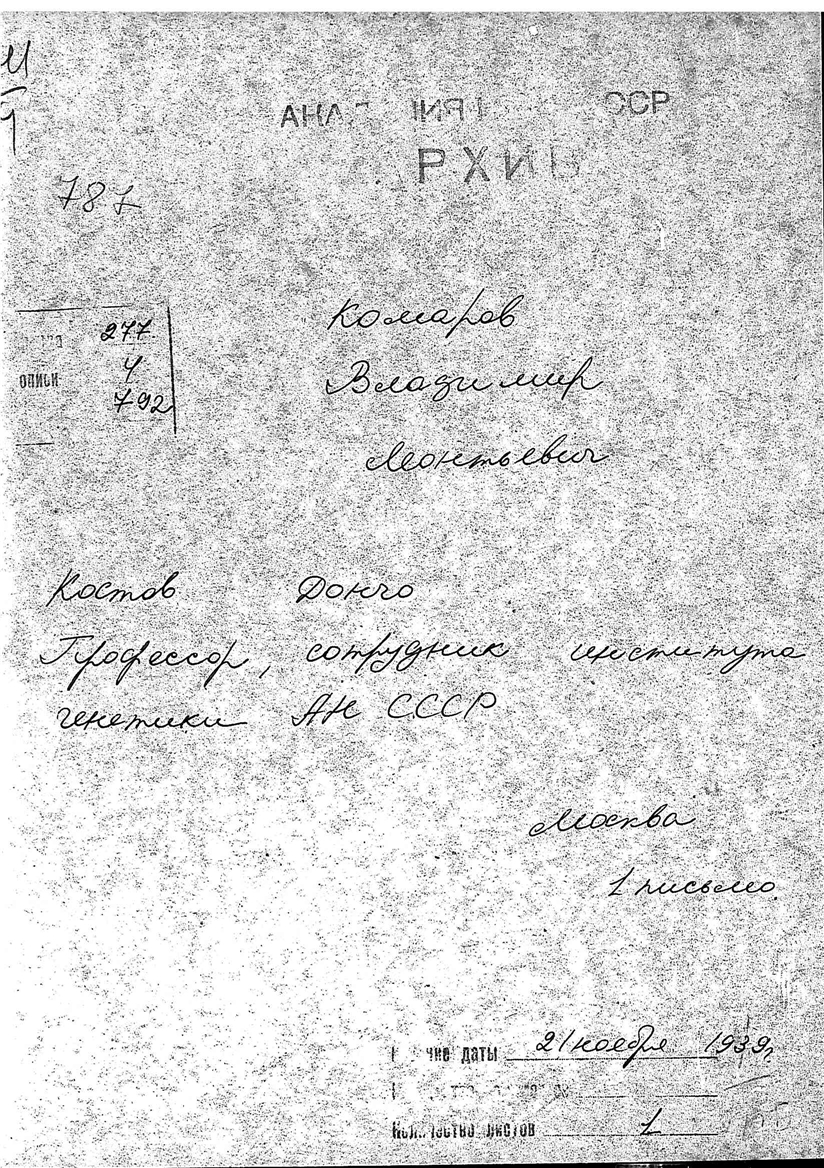 787
ССР
277
описи 4
792
Комаров
Владимир
Леонтьевич
Костов Дончо
Профессор, сотрудник института
генетики АН СССР
Москва
1 письмо
даты 21 ноября 1939г.
Количество листов 1